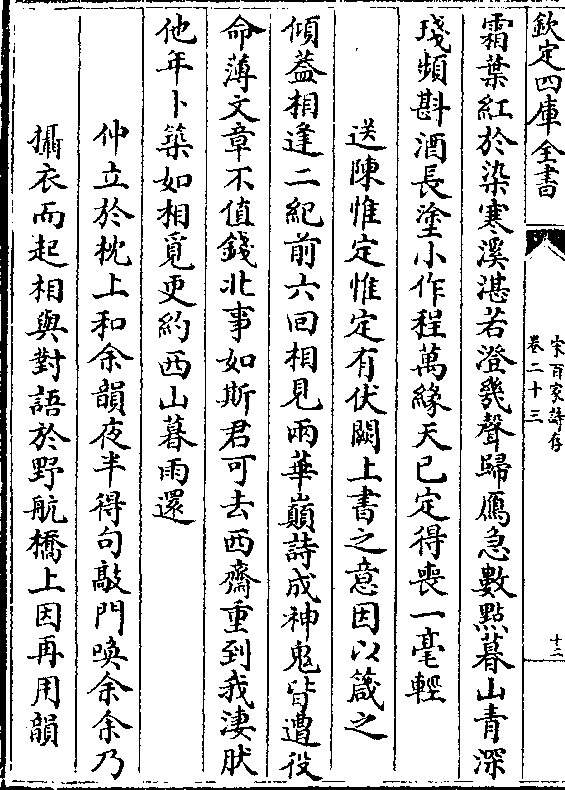 欽定四庫全書
宋百家詩存
卷二十三
十二
霜葉紅於染寒溪湛若澄幾聲歸鴈急數點暮山青深
琖頻斟酒長塗小作程萬緣天已定得喪一毫輕
送陳惟定惟定有伏闕上書之意因以箴之
傾葢相逢二紀前六回相見兩華巔詩成神鬼皆遭役
命薄文章不值錢北事如斯君可去西齋重到我淒肰
他年卜築如相覓更約西山暮雨還
仲立於枕上和余韻夜半得句敲門喚余余乃
攝衣而起相與對語於野航橋上因再用韻